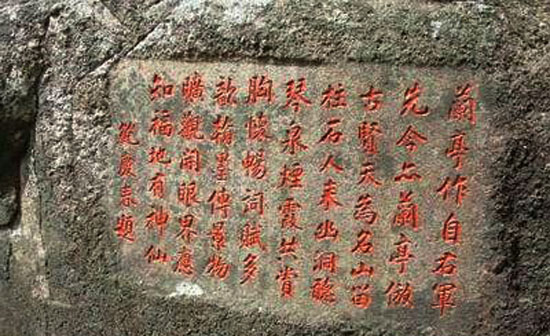 蘭亭作自右軍
先今亦蘭亭倣
古賢天為名山留
柱石人来幽洞聽
琴泉煙霞共賞
胸懷暢詞賦多
歆翰墨傳景物
曠觀開眼界應
知福地有神仙
慶春題